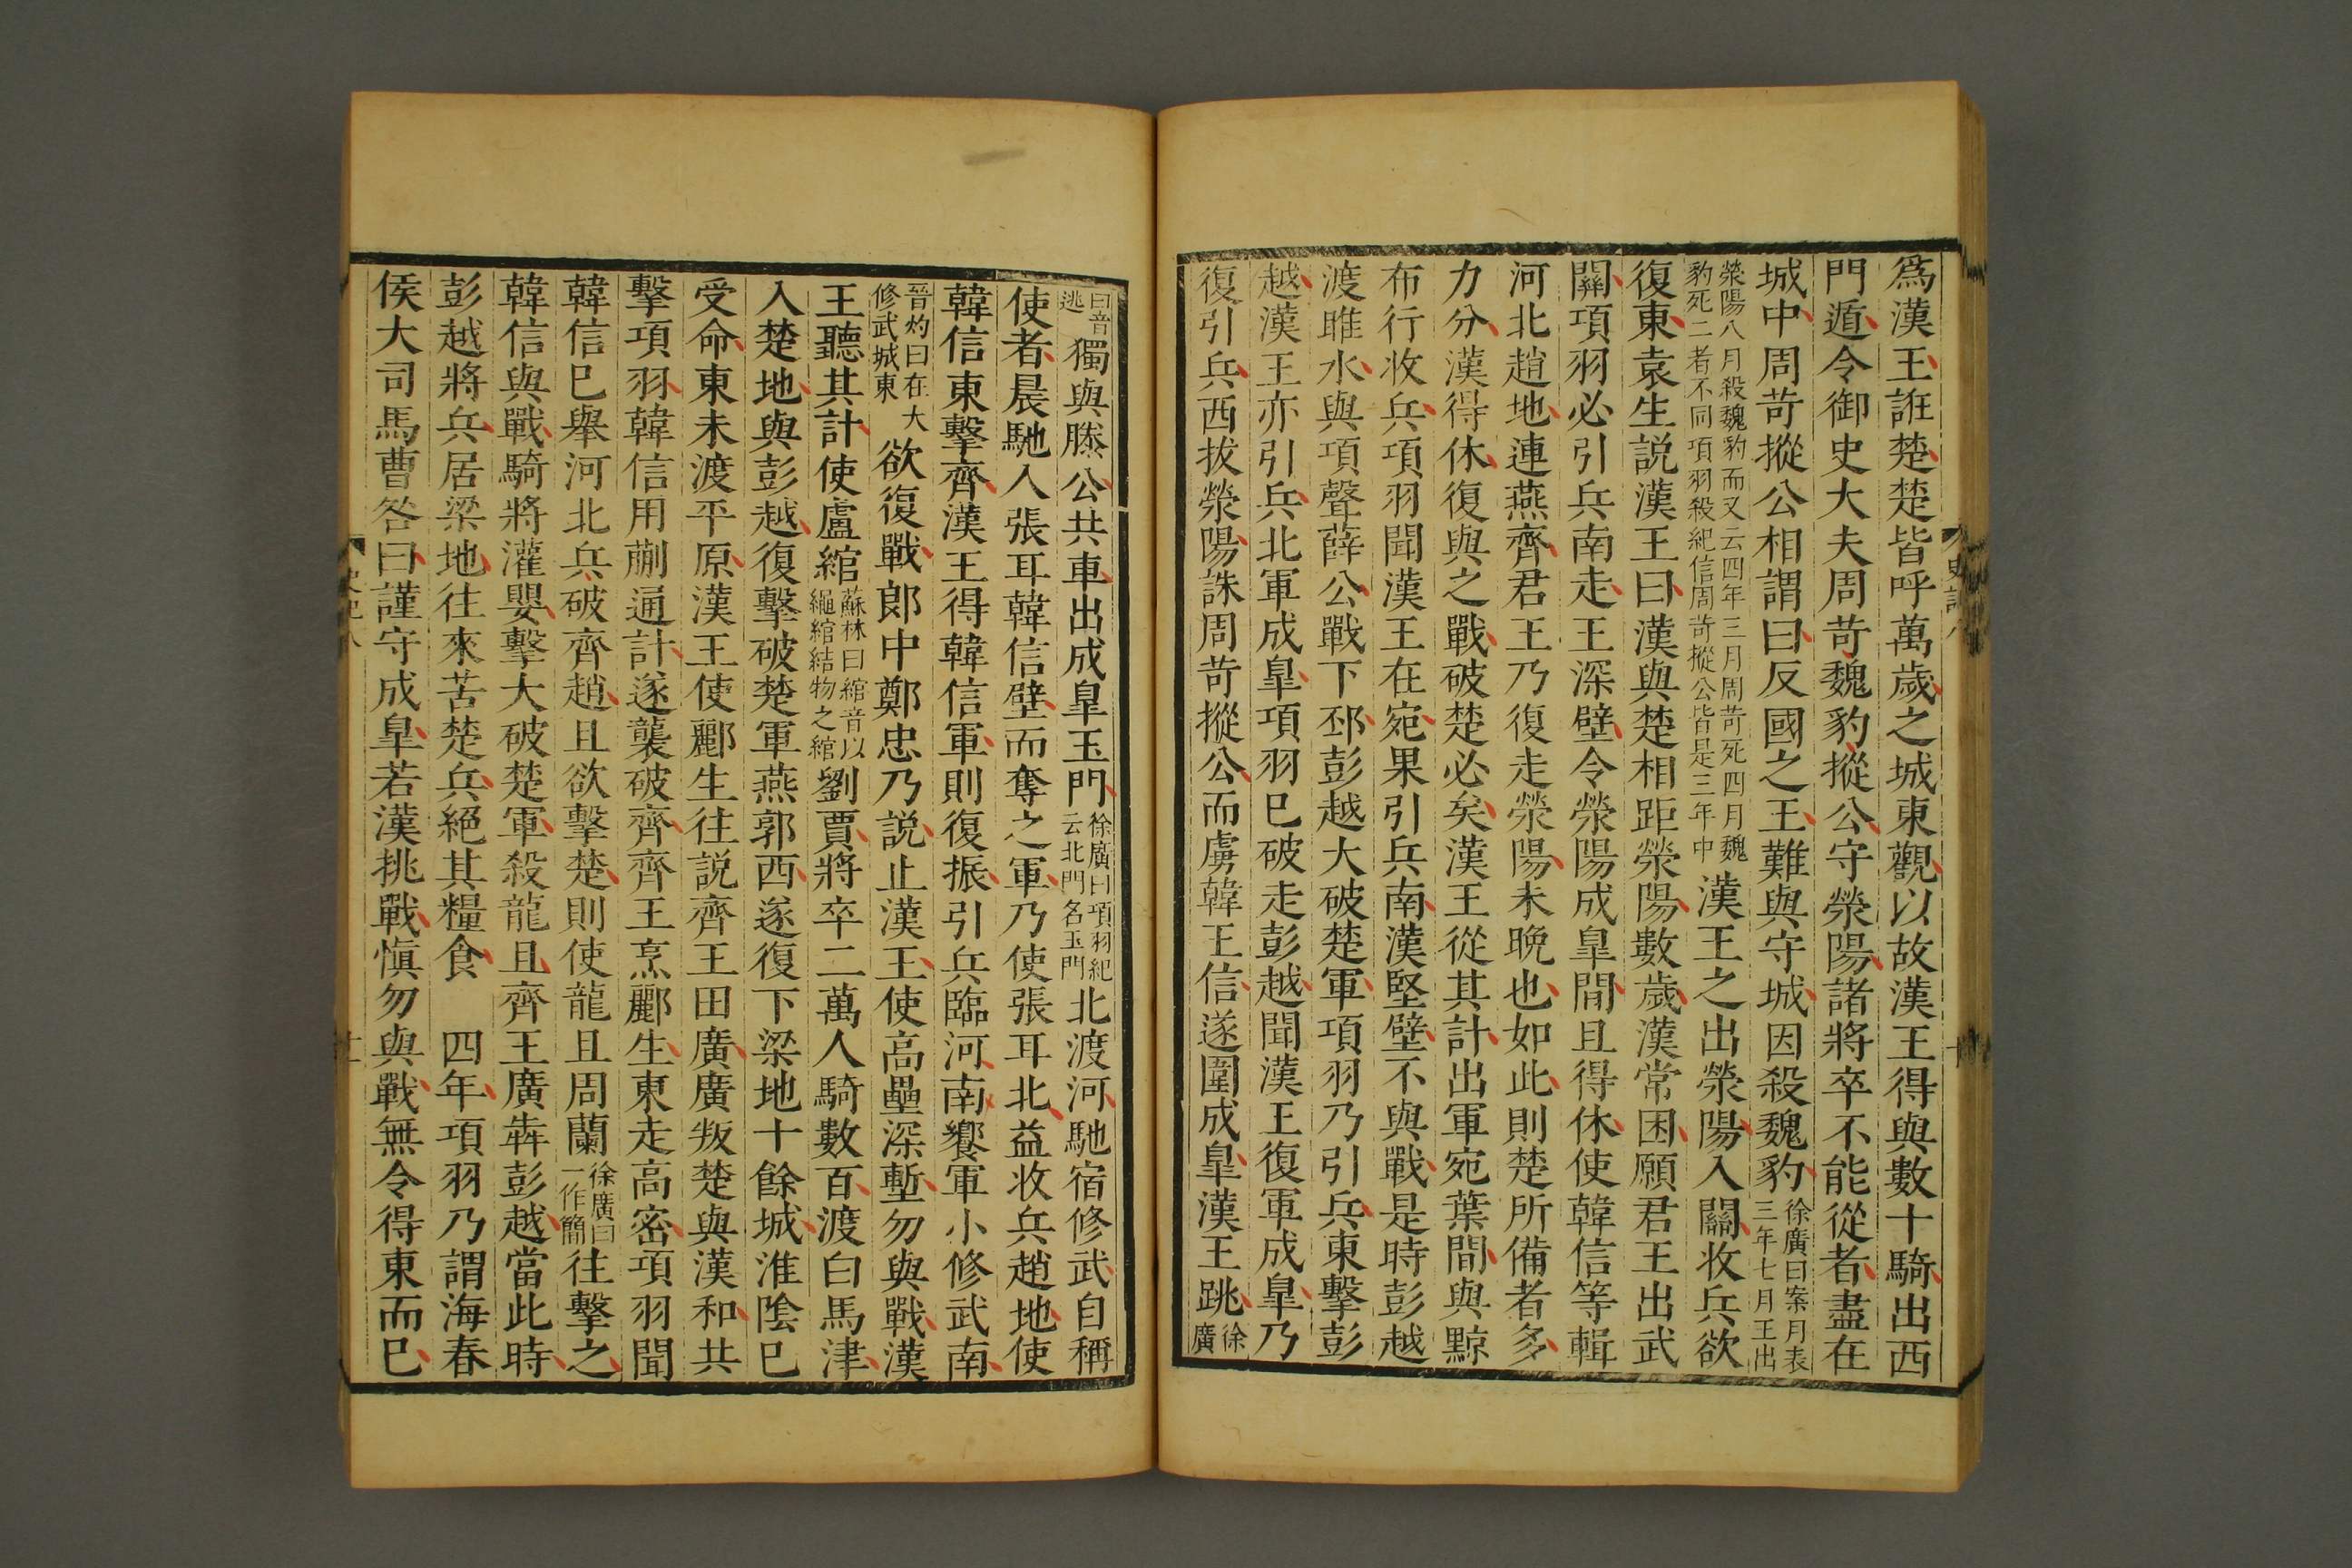 爲漢王誑楚楚皆呼萬歲之城東觀以故漢王得與數十騎出西
門遁令御史大夫周苛魏豹樅公守滎陽諸將卒不能從者盡在
城中周苛樅公相謂曰反國之王難與守城因殺魏豹徐廣曰案月表三年七月王出
滎陽八月殺魏豹而又云四年三月周苛死四月魏豹死二者不同項羽殺紀信周苛樅公皆是三年中漢王之出滎陽入關收兵欲
復東袁生説漢王曰漢與楚相距滎陽數歲漢常困願君王出武
關項羽必引兵南走王深壁令滎陽成皐間且得休使韓信等輯
河北趙地連燕齊君王乃復走滎陽未晚也如此則楚所備者多
力分漢得休復與之戰破楚必矣漢王從其計出軍宛葉間與黥
布行收兵項羽聞漢王在宛果引兵南漢堅壁不與戰是時彭越
渡睢水與項聲薛公戰下邳彭越大破楚軍項羽乃引兵東擊彭
越漢王亦引兵北軍成皐項羽已破走彭越聞漢王復軍成皐乃
復引兵西拔滎陽誅周苛樅公而虜韓王信遂圍成皐漢王跳徐廣
曰音逃獨與滕公共車出成皐玉門徐廣曰項羽紀云北門名玉門北渡河馳宿修武自稱
使者晨馳入張耳韓信壁而奪之軍乃使張耳北益收兵趙地使
韓信東擊齊漢王得韓信軍則復振引兵臨河南饗軍小修武南
晉灼曰在大修武城東欲復戰郞中鄭忠乃説止漢王使高壘深塹勿與戰漢
王聽其計使盧綰蘇林曰綰音以繩綰結物之綰劉賈將卒二萬人騎數百渡白馬津
入楚地與彭越復擊破楚軍燕郭西遂復下梁地十餘城淮陰已
受命東未渡平原漢王使酈生往説齊王田廣廣叛楚與漢和共
擊項羽韓信用蒯通計遂襲破齊齊王烹酈生東走高密項羽聞
韓信已舉河北兵破齊趙且欲擊楚則使龍且周蘭徐廣曰一作簡往擊之
韓信與戰騎將灌嬰擊大破楚軍殺龍且齊王廣犇彭越當此時
彭越將兵居梁地往來苦楚兵絕其糧食　四年項羽乃謂海春
侯大司馬曹咎曰謹守成皐若漢挑戰愼勿與戰無令得東而已